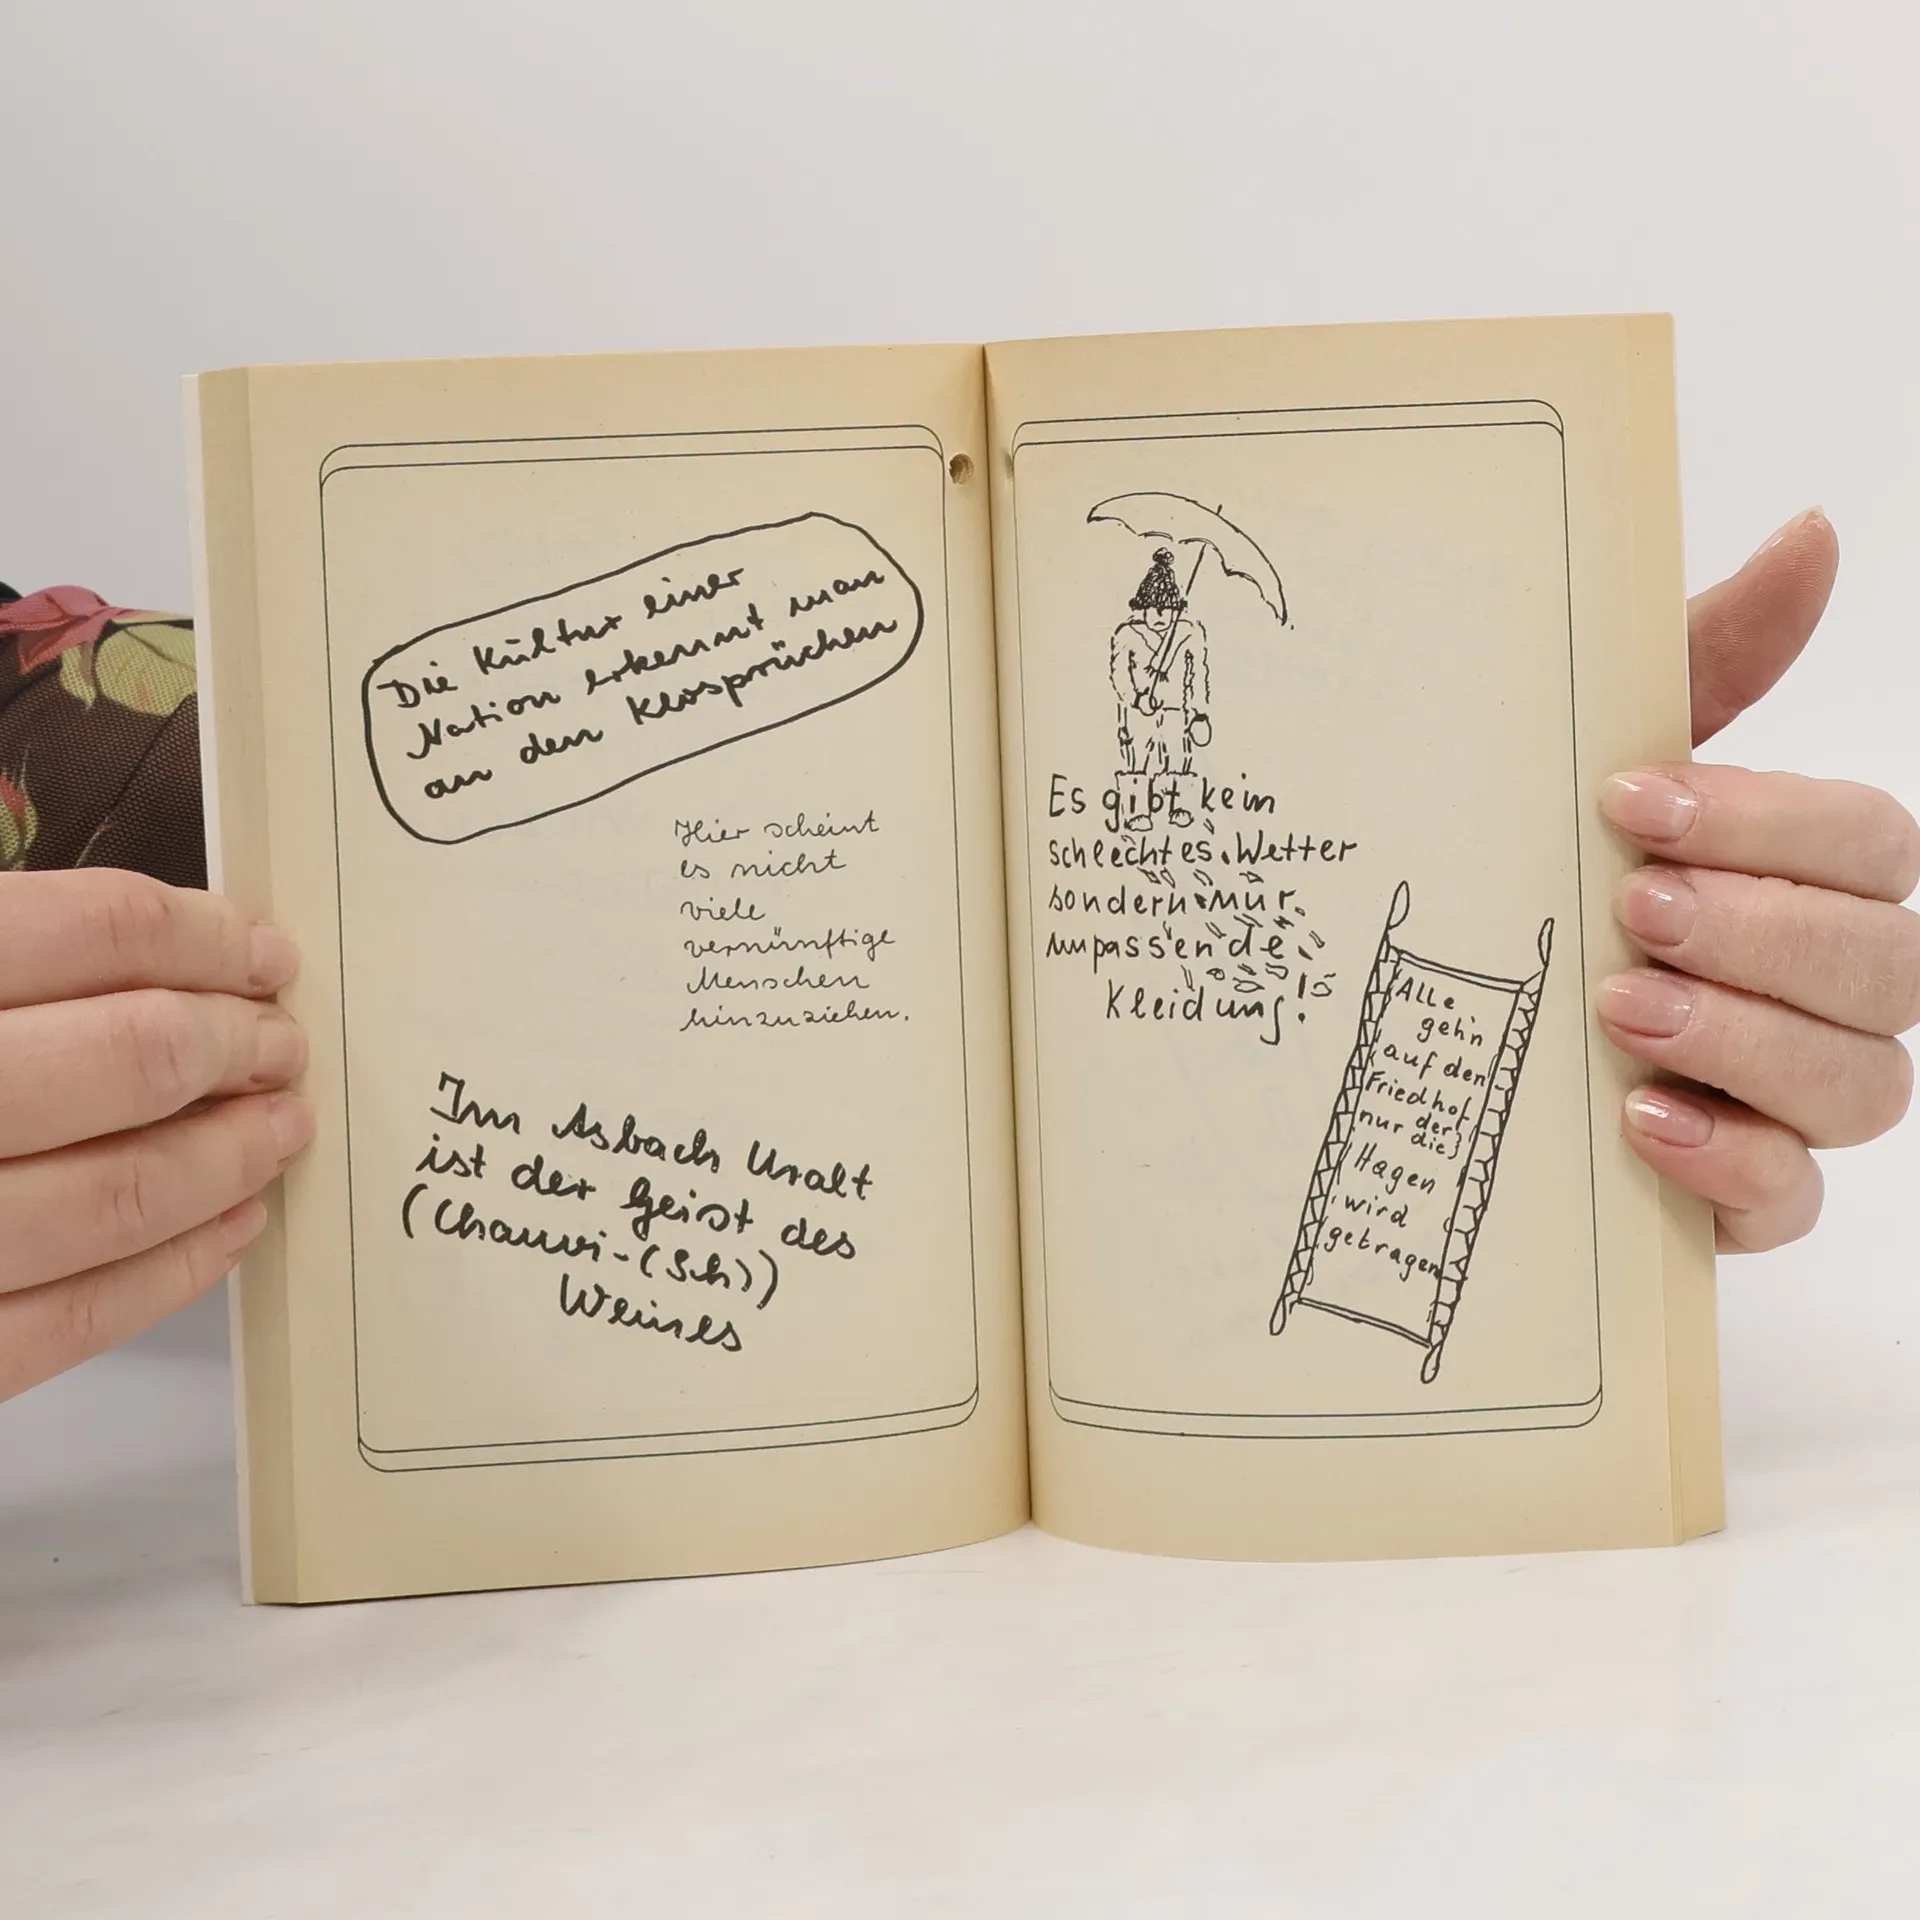 Die Kultur einer
Nation erkennt man
an den Klosprüchen
Hier scheint
es nicht
viele
vernünftige
Menschen
hinzuziehen.
Im Asbach Uralt
ist der Geist des
(Chauvi-(Sch))
Weines
Es gibt kein
schlechtes Wetter
sondern nur
unpassende
Kleidung!
Alle
geh'n
auf den
Friedhof
nur der
die
Hagen
wird
getragen